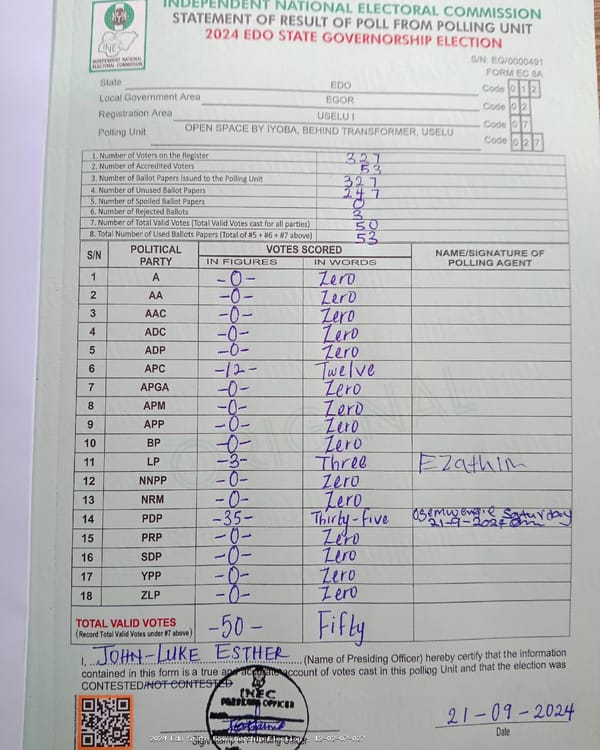 INDEPENDENT NATIONAL ELECTORAL COMMISSION
STATEMENT OF RESULT OF POLL FROM POLLING UNIT
2024 EDO STATE GOVERNORSHIP ELECTION
INEC
INDEPENDENT NATIONAL
ELECTORAL COMMISSION
S/N: EG/0000491
FORM EC 8A
State EDO Code 0 1 2
Local Government Area EGOR Code 0 2
Registration Area USELU I Code 0 7
Polling Unit OPEN SPACE BY IYOBA, BEHIND TRANSFORMER, USELU Code 0 2 7
1. Number of Voters on the Register 327
2. Number of Accredited Voters 53
3. Number of Ballot Papers Issued to the Polling Unit 327
4. Number of Unused Ballot Papers 247
5. Number of Spoiled Ballot Papers 0
6. Number of Rejected Ballots 3
7. Number of Total Valid Votes (Total Valid Votes cast for all parties) 50
8. Total Number of Used Ballots Papers (Total of #5 + #6 + #7 above) 53
S/N POLITICAL PARTY VOTES SCORED NAME/SIGNATURE OF POLLING AGENT
IN FIGURES IN WORDS
1 A -0- Zero
2 AA -0- Zero
3 AAC -0- Zero
4 ADC -0- Zero
5 ADP -0- Zero
6 APC -12- Twelve
7 APGA -0- Zero
8 APM -0- Zero
9 APP -0- Zero
10 BP -0- Zero
11 LP -3- Three
12 NNPP -0- Zero
13 NRM -0- Zero
14 PDP -35- Thirty-five Saturday
21-9-2024
15 PRP -0- Zero
16 SDP -0- Zero
17 YPP -0- Zero
18 ZLP -0- Zero
TOTAL VALID VOTES -50- Fifty
(Record Total Valid Votes under #7 above)
I, JOHN-LUKE ESTHER (Name of Presiding Officer) hereby certify that the information
contained in this form is a true and accurate account of votes cast in this polling Unit and that the election was
CONTESTED/NOT CONTESTED
INEC
PRESIDING OFFICER
21-09-2024
Date
2024 Edo State Governorship Election - 12-02-07-027
ORIGINAL